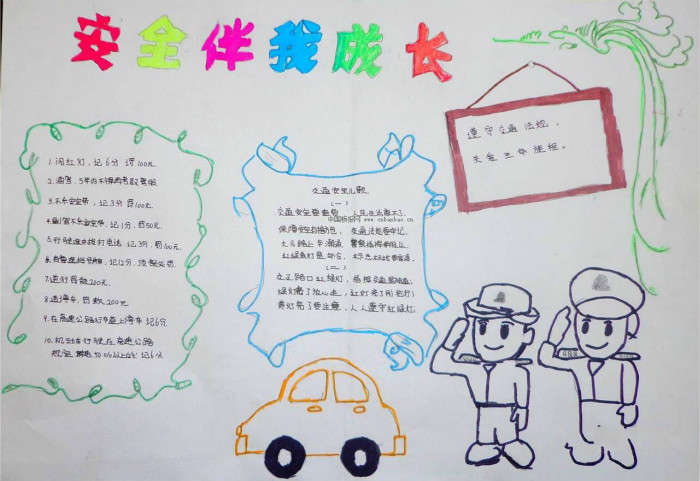 安全伴我成长
1. 闯红灯,记6分 罚100元
2. 酒驾,5年内不得再考取驾照
3. 不系安全带,记3分,罚100元.
4. 副驾不系安全带.记1分,罚50元.
5. 行驶途中拨打电话,记3分,罚100元.
记12分,
7. 逆行罚款200元.
8. 违停车,罚款,200元
9. 在高速公路行车道上停车 记6分
10. 机动车行驶在高速公路
规定 50%以上的 记6分
交通安全儿歌
(一)
交通安全要重视,
中国板报网 www.cnbanbao.cn
保障安全有措施, 交通法规要牢记,
大马路上车潮涌,
(二)
交叉路口红绿灯,
绿灯亮了放心走, 红灯亮了别抢行;
黄灯亮了要注意, 人人遵守红绿灯.
遵守交通法规.
关爱生命旅程.